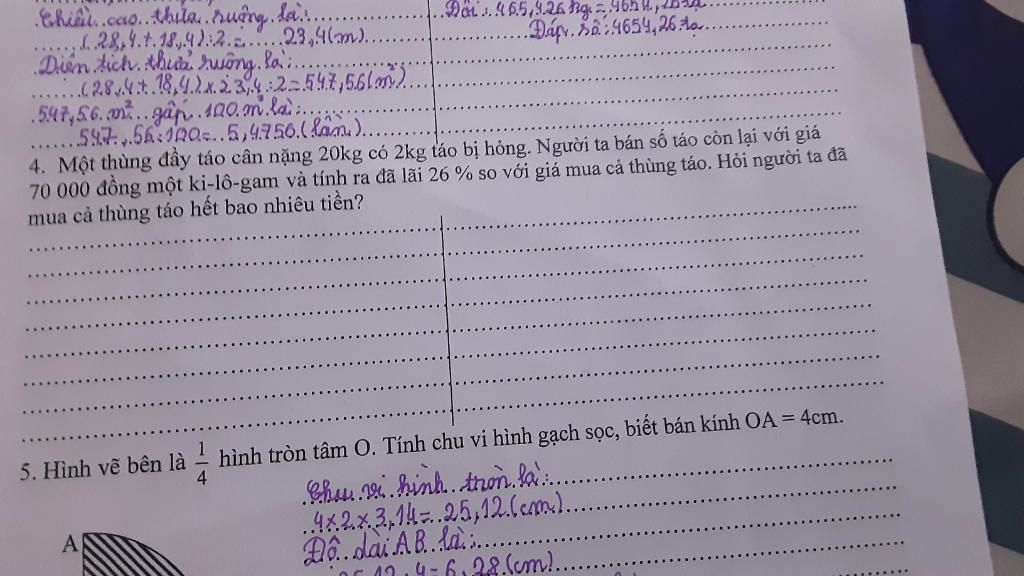 Chiều cao thửa ruộng là:
(28,4 + 18,4) : 2 = 23,4 (m)
Diện tích thửa ruộng là:
(28,4 + 18,4) x 23,4 : 2 = 547,56 (m²)
547,56 m² gấp 100 m² là:
547,56 : 100 = 5,4756 (lần)
Đổi: 465,426 kg = 4654,26 tạ
Đáp số: 4654,26 tạ
4. Một thùng đầy táo cân nặng 20kg có 2kg táo bị hỏng. Người ta bán số táo còn lại với giá
70 000 đồng một ki-lô-gam và tính ra đã lãi 26 % so với giá mua cả thùng táo. Hỏi người ta đã
mua cả thùng táo hết bao nhiêu tiền?
5. Hình vẽ bên là 1/4 hình tròn tâm O. Tính chu vi hình gạch sọc, biết bán kính OA = 4cm.
Chu vi hình tròn là:
4 x 2 x 3,14 = 25,12 (cm)
A
Độ dài AB là:
25,12 : 4 = 6,28 (cm)